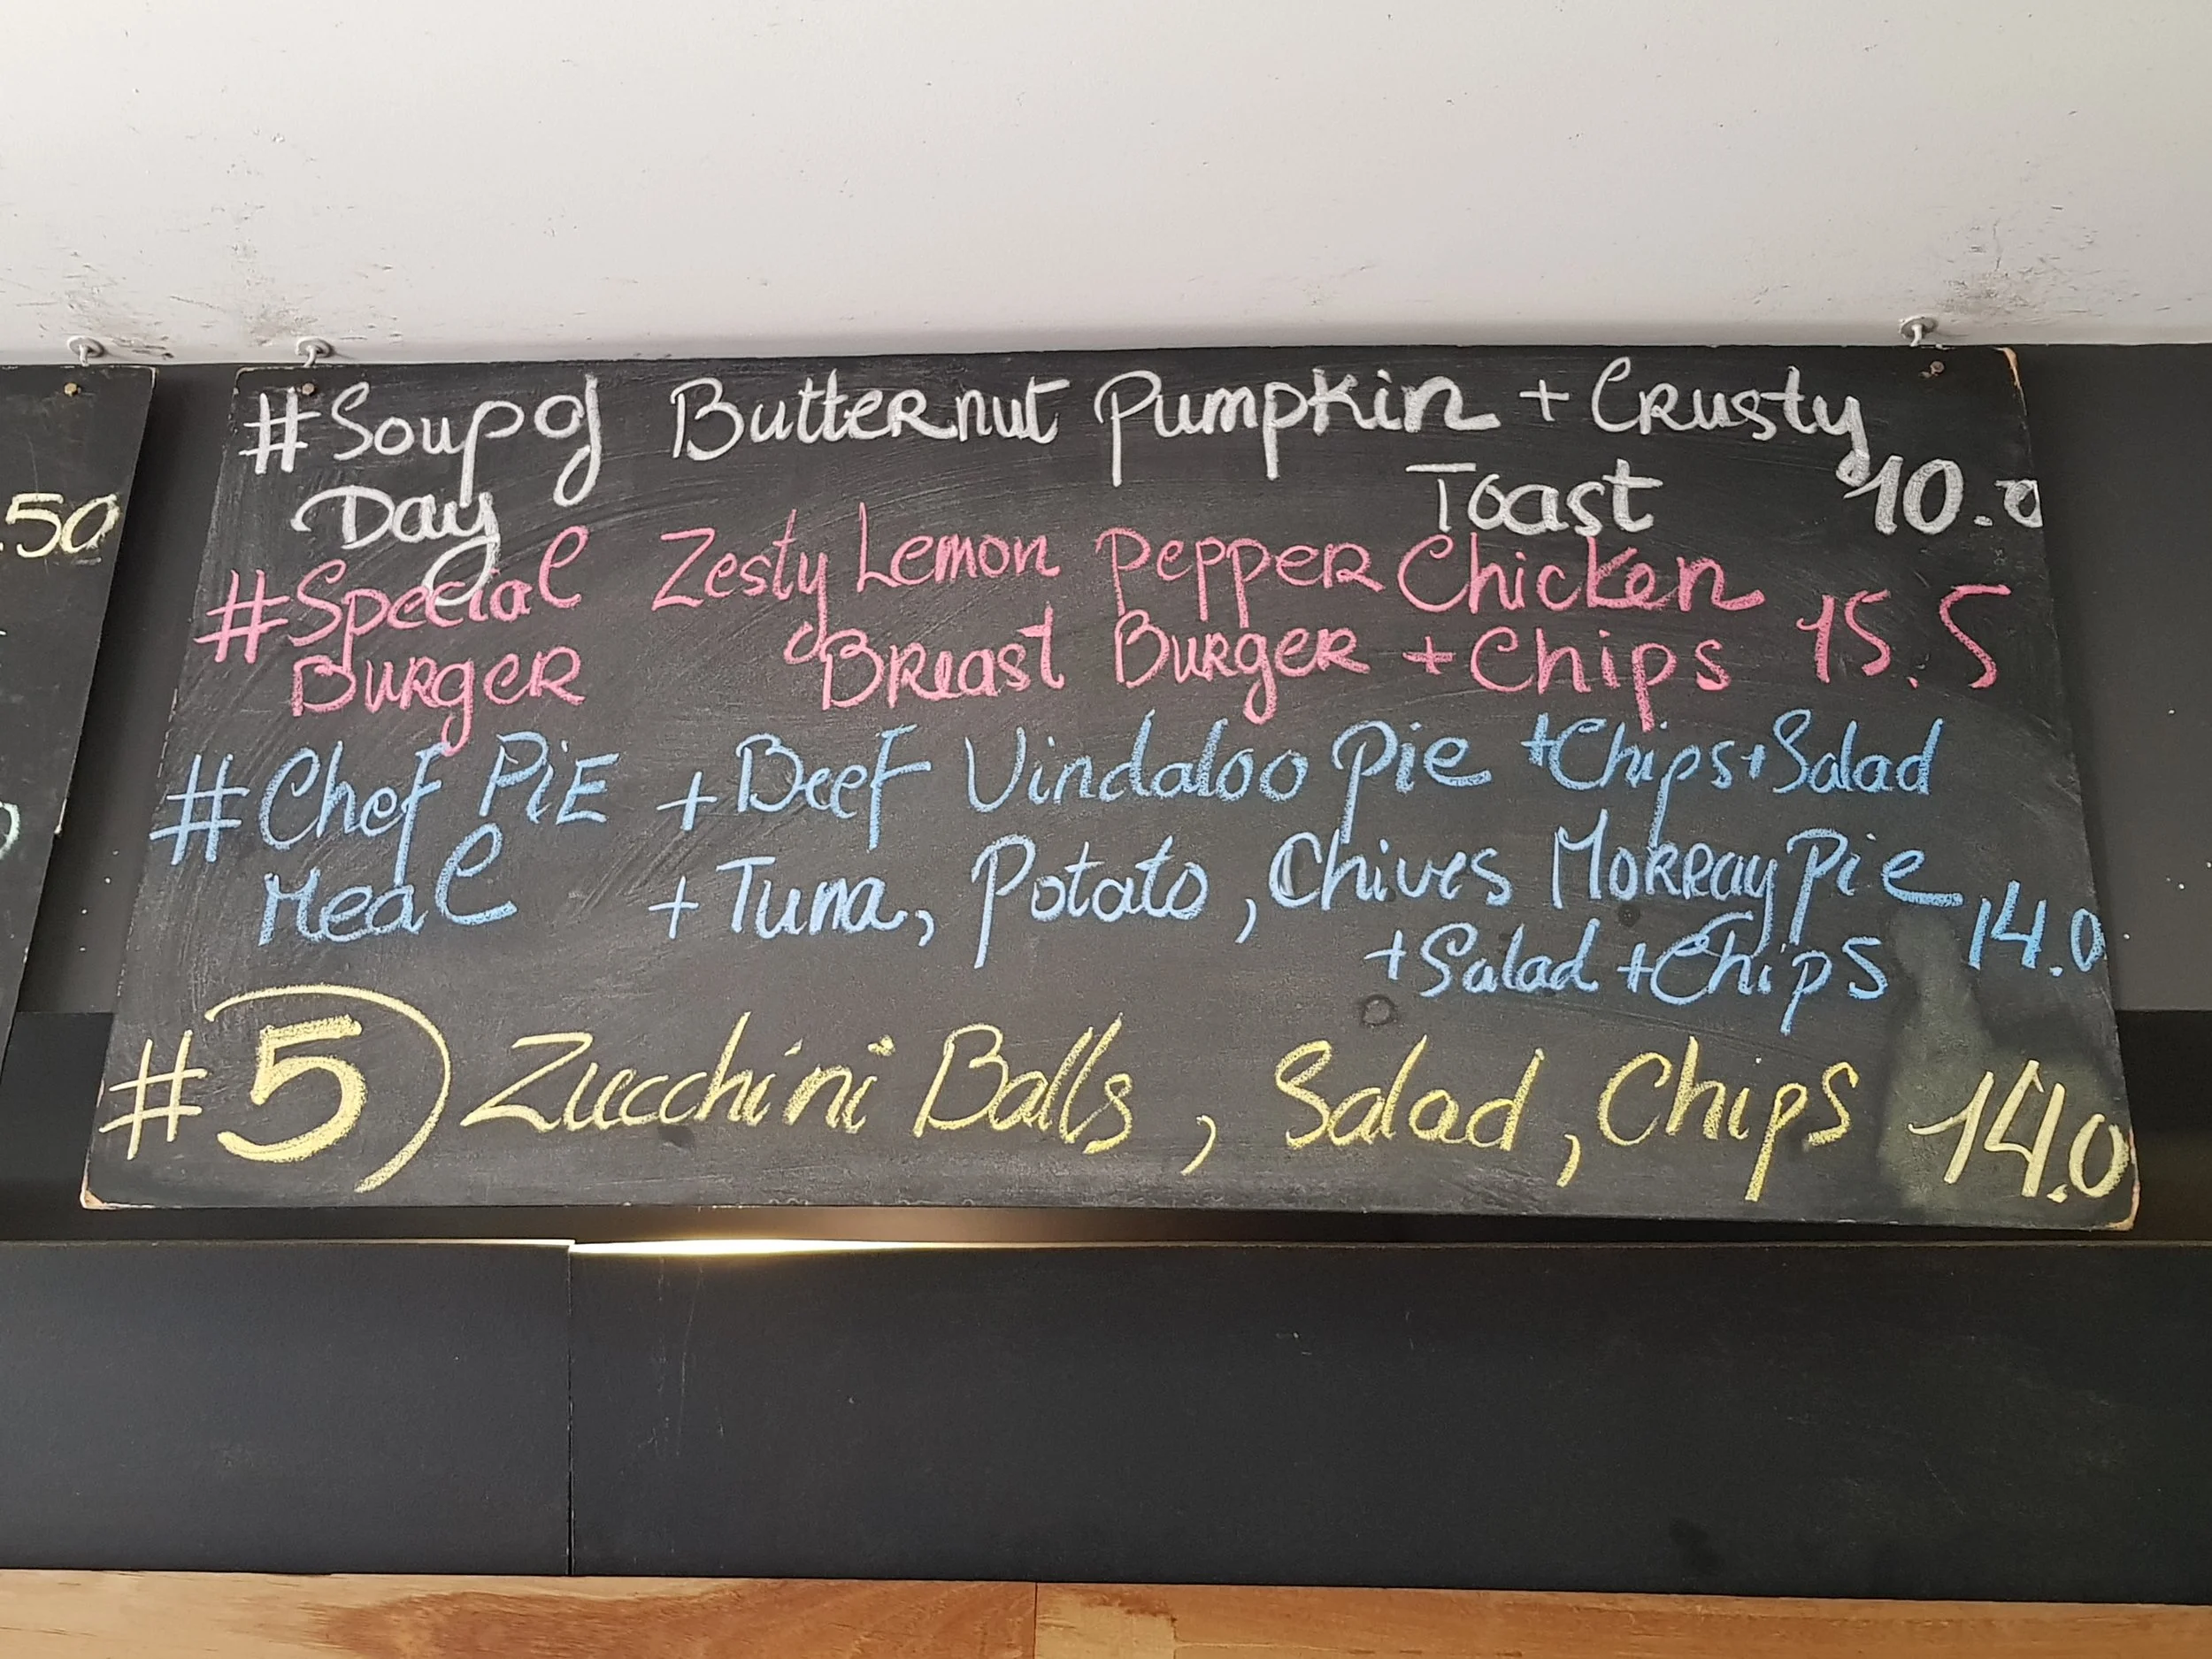 #Soup of Butternut Pumpkin + Crusty
Day Toast 10.0
#Special Zesty Lemon Pepper Chicken
Burger Breast Burger + Chips 15.5
#Chef PiE + Beef Vindaloo Pie + Chips + Salad
Meal + Tuna, Potato, Chives Mokray Pie
+ Salad + Chips 14.0
#5) Zucchini Balls, Salad, Chips 14.0
.50